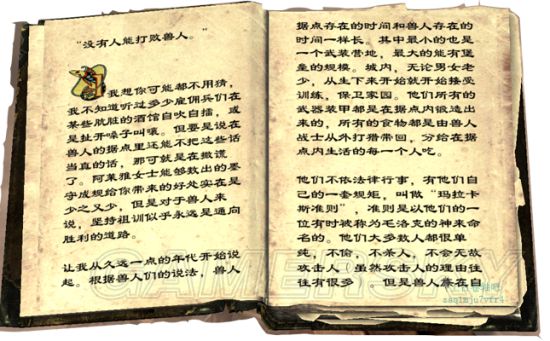 “没有人能打败兽人。”
我想你可能都不用猜，
我不知道听过多少雇佣兵们在
某些肮脏的酒馆自吹自擂，或
是扯开嗓子叫嚷。但要是说在
兽人的据点里还能不把这些话
当真的话，那可就是在撒谎
了。阿莱雅女士能够数出的墨
守成规给你带来的好处实在是
少之又少，但是对于兽人来
说，坚持祖训似乎永远是通向
胜利的道路。
让我从久远一点的年代开始说
起。根据兽人们的说法，兽人
据点存在的时间和兽人存在的
时间一样长。其中最小的也是
一个武装营地，最大的能有堡
垒的规模。城内，无论男女老
少，从生下来开始就开始接受
训练，保卫家园。他们所有的
武器装甲都是在据点内锻造出
来的，所有的食物都是由兽人
战士从外打猎带回，分给在据
点内生活的每一个人吃。
他们不依法律行事，有他们自
己的一套规矩，叫做“玛拉卡
斯准则”，准则是以他们的一
位有时被称为毛洛克的神来命
名的。他们大多数人都很单
纯，不偷，不杀人，不会无故
攻击人，虽然攻击人的理由往
往有很多。但是兽人族在自
GAMERSKY
saqimju7vfr4